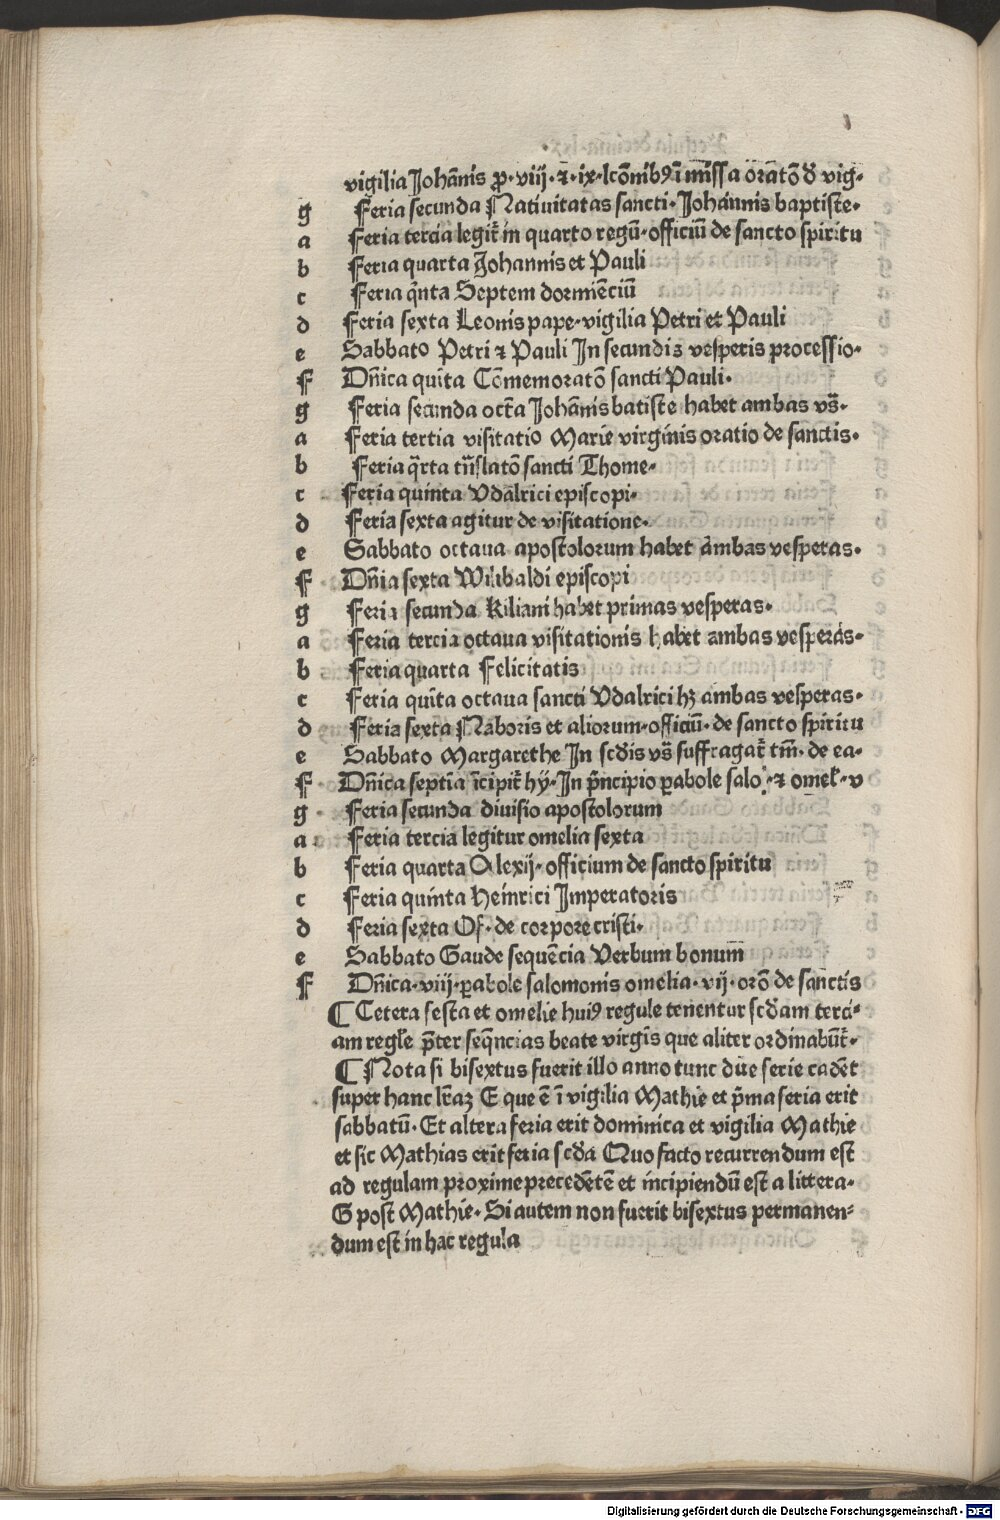 vigilia Johānis ꝓ·viij·⁊·ix·lcōnibꝰ ī missa orātō đ vig-
g Feria secunda Natiuitatas sancti·Johannis baptiste·
a Feria tercia legit᷑ in quarto regū·officiū de sancto spiritu
b Feria quarta Johannis et Pauli
c Feria q̄nta Septem dormiēciū
d Feria sexta Leonis pape·vigilia Petri et Pauli
e Sabbato Petri ⁊ Pauli In secundis vesperis processio·
F Dn̄ica quīta Cōmemoratō sancti Pauli·
g Feria secunda oct̄a Johānis batiste habet ambas vs̄·
a Feria tertia visitatio Marie virginis oratio de sanctis·
b Feria q̄rta tn̄slatō sancti Thome·
c Feria quinta Vdalrici episcopi·
d Feria sexta agitur de visitatione·
e Sabbato octaua apostolorum habet ambas vesperas·
F Dn̄ia sexta Wilibaldi episcopi
g Feria secunda Kiliani habet primas vesperas·
a Feria tercia octaua visitationis habet ambas vesperas·
b Feria quarta Felicitatis
c Feria quīta octaua sancti Vdalrici hꝫ ambas vesperas·
d Feria sexta Naboris et aliorum·officiū·de sancto spiritu
e Sabbato Margarethe In scđis vs̄ suffragat᷑ tm̄·de ea·
F Dn̄ica septīa īcipit᷑ hy·In p̄ncipio ꝑabole salo·⁊ omel·v
g Feria secunda diuisio apostolorum
a Feria tercia legitur omelia sexta
b Feria quarta Alexij·officium de sancto spiritu
c Feria quinta Heinrici Imperatoris
d Feria sexta Of·de corpore cristi·
e Sabbato Gaude sequēcia Verbum bonum
F Dn̄ica·viij·ꝑabole salomonis omelia·vij·orō de sanctis
¶ Cetera festa et omelie huiꝰ regule tenentur scđam terci-
am regl̄e p̄ter seq̄ncias beate virgīs que aliter ordinabūt᷑·
¶ Nota si bisextus fuerit illo anno tunc due ferie cadēt
super hanc lr̄aꝫ E que ē ī vigilia Mathie et p̄ma feria erit
sabbatū·Et altera feria erit dominica et vigilia Mathie
et sic Mathias erit feria scđa Quo facto recurrendum est
ad regulam proxime precedētē et incipiendū est a littera·
G post Mathie·Si autem non fuerit bisextus permanen-
dum est in hac regula
Digitalisierung gefördert durch die Deutsche Forschungsgemeinschaft - DFG